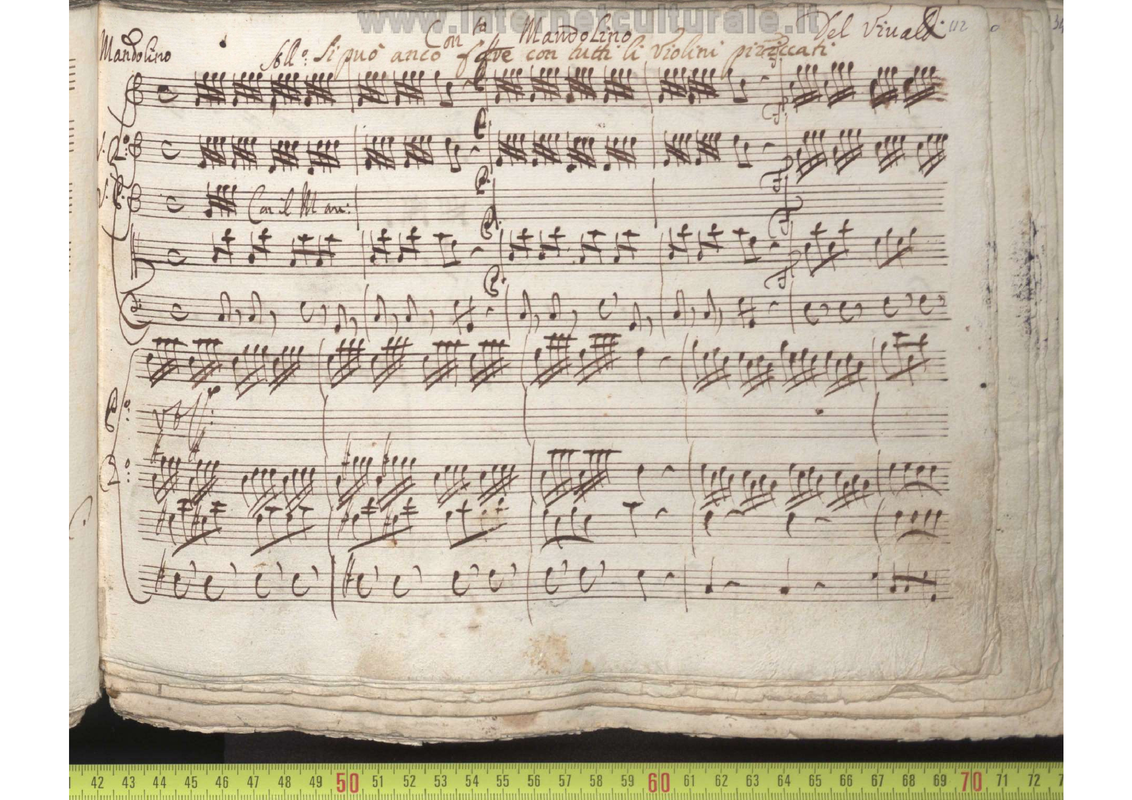 www.internetculturale.it
Con la Mandolino Del Vivaldi 112
Mandolino
All.o Si può anco fare con tutti li Violini pizziccati
P. P. P. P.
F. F. F. F.
Con il Man:
42 43 44 45 46 47 48 49 50 51 52 53 54 55 56 57 58 59 60 61 62 63 64 65 66 67 68 69 70 71 72 7